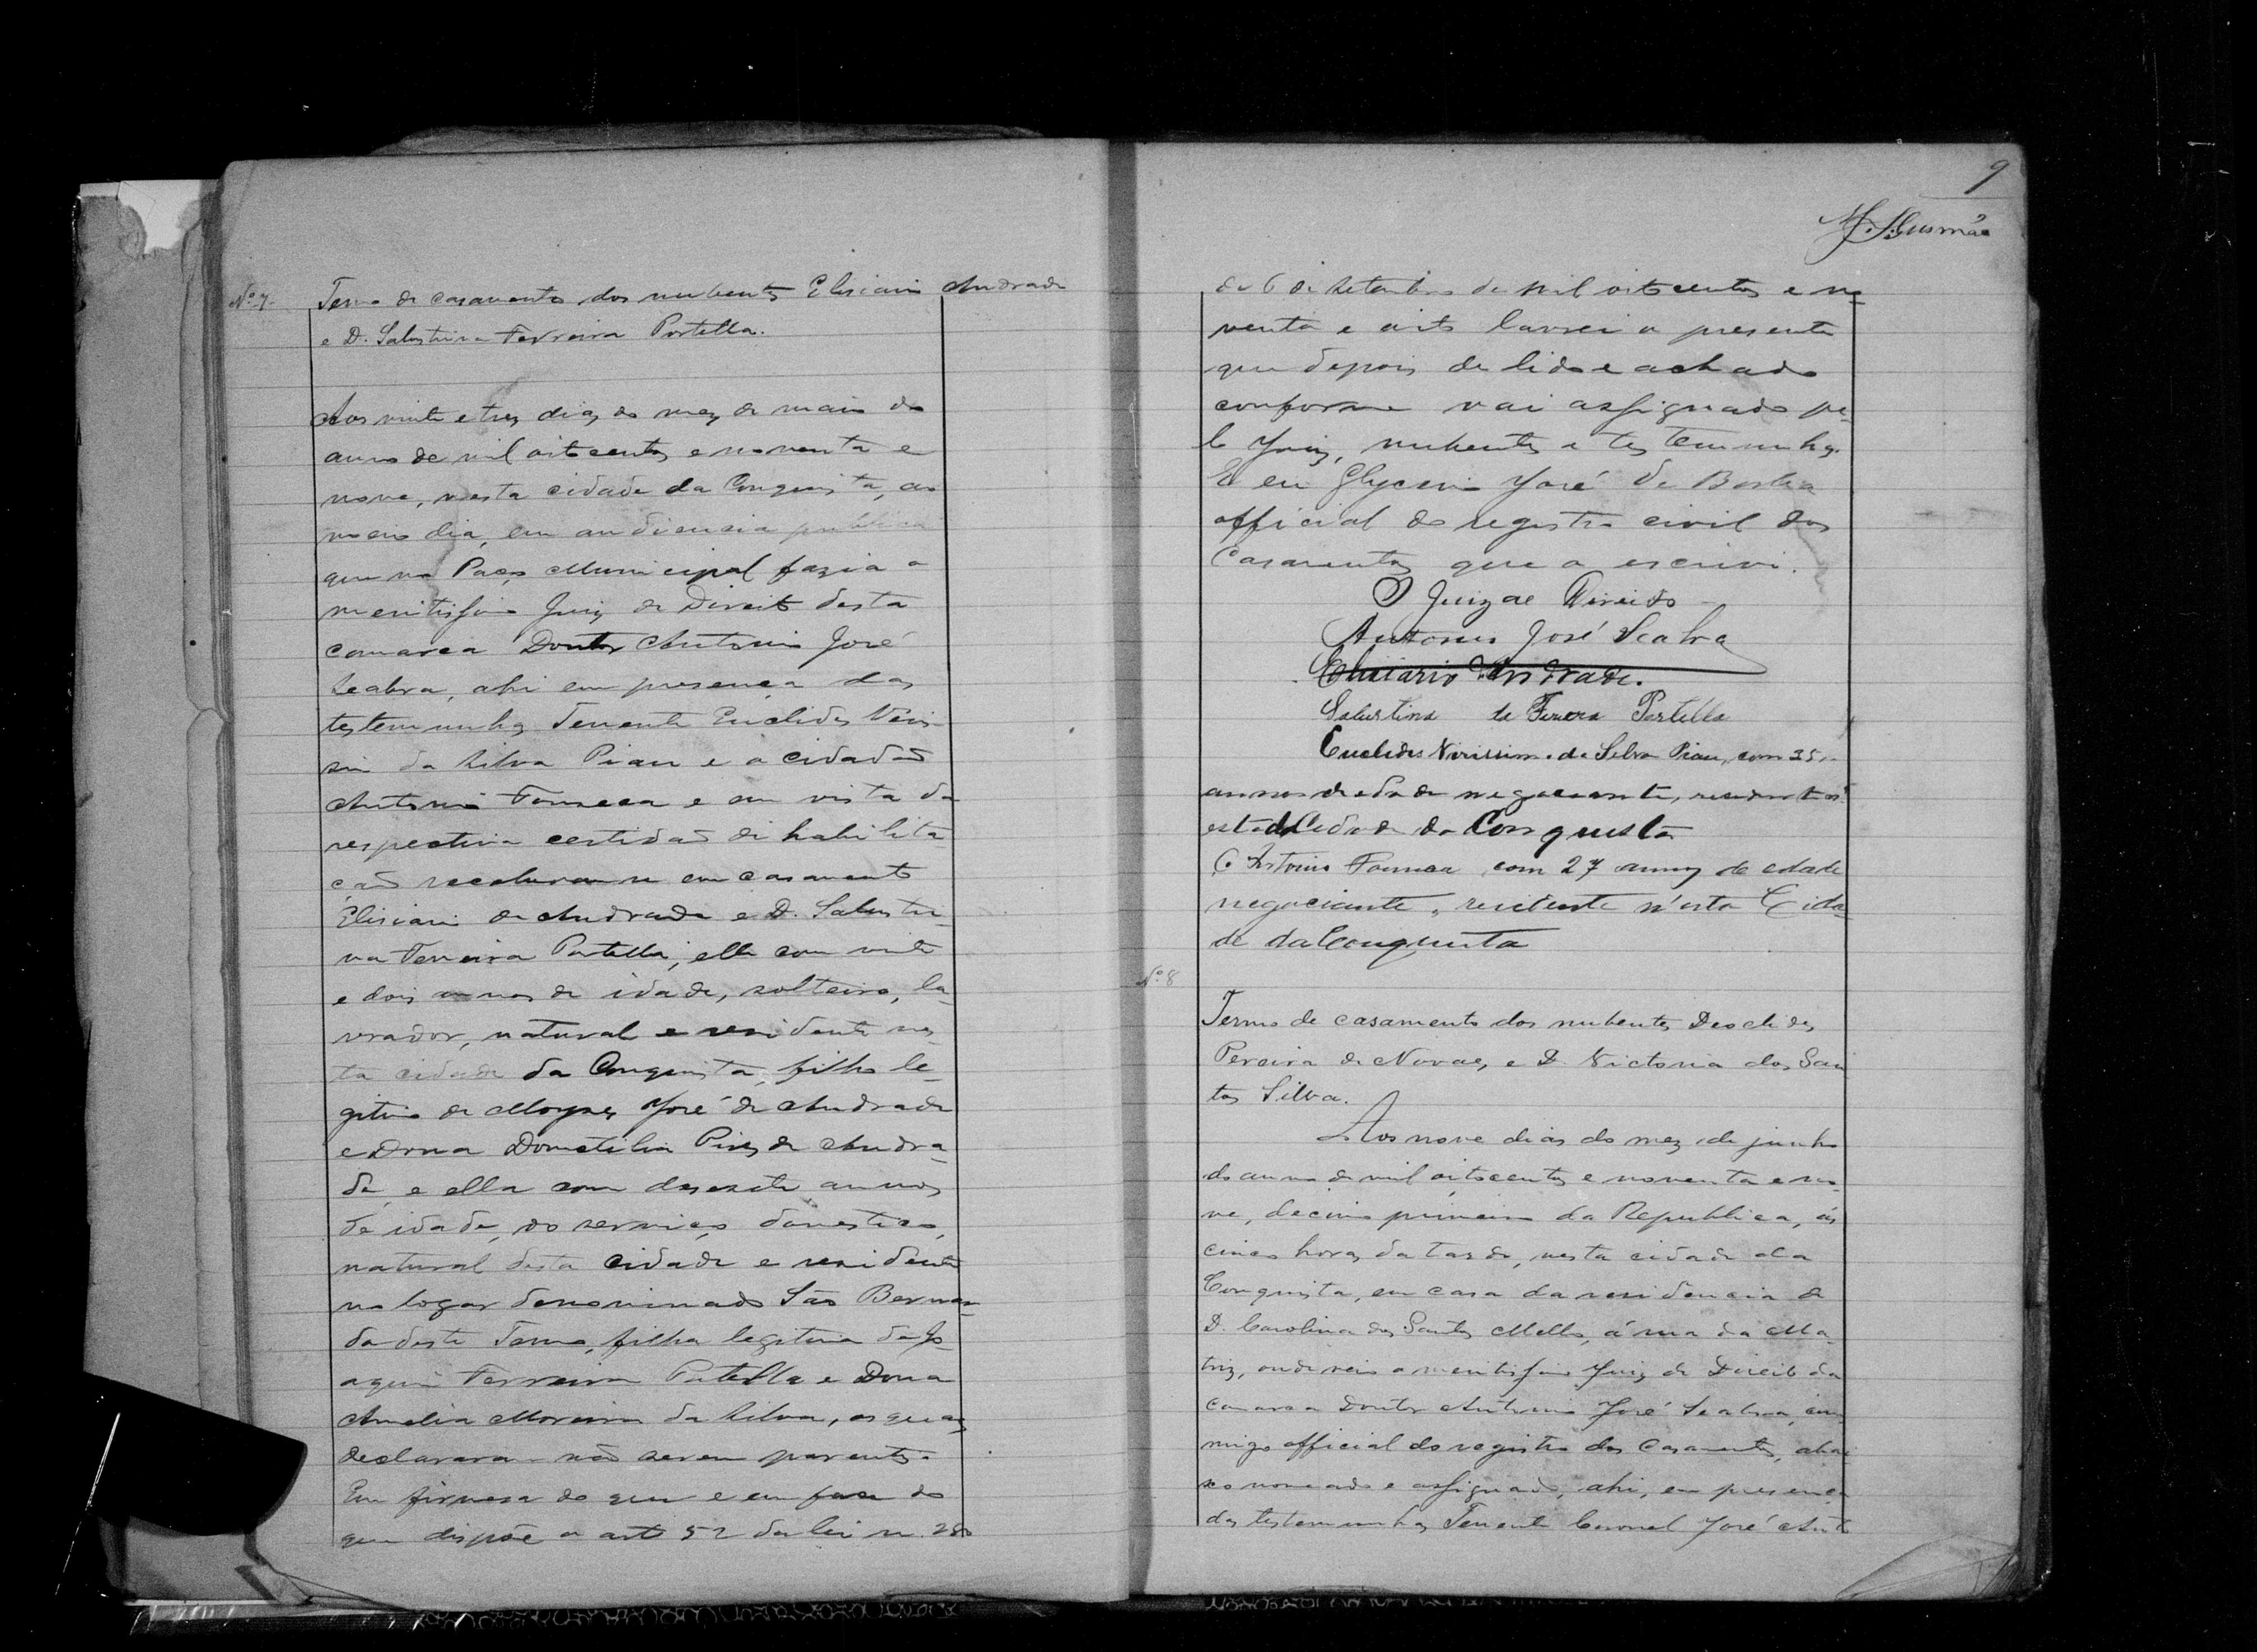 Nº 7. Termo de casamento dos nubents Elisiario Andrade
e D. Salustina Ferreira Portella.
Aos vinte e trez dias do mez de maio do
anno de mil oitocentos e noventa e
nove, nesta cidade da Conquista, ao
meio dia, em audiencia publica
que no Paço Municipal fazia o
meritissimo Juiz de Direito desta
comarca Doutor Antonio José
Seabra, ahi em presença das
testemunhas Tenente Euclides Veris-
simo da Silva Piau e o cidadão
Antonio Fonseca e em vista da
respectiva certidão de habilita
ção receberam-se em casamento
Elisiario de Andrade e D. Salusti-
na Ferreira Portella, elle com vinte
e dois annos de idade, solteiro, la-
vrador, natural e residente nes-
ta cidade da Conquista, filho le-
gitimo de Moyses José de Andrade
e Dona Dometilia Pires de Andra-
de, e ella com desesete annos
de idade, do serviço domestico,
natural desta cidade e residente
no logar denominado São Bernar-
do deste Termo, filha legitima de Jo-
aquim Ferreira Portella e Dona
Amelia Moreira da Silva, os quaes
declararam não serem parentes.
Em firmesa do que e em face do
que dispõe o art 52 da lei n. 280
9
M. Gusmão
de 6 de Setembro de mil oitocentos e no-
venta e oito lavrei o presente
que depois de lido e achado
conforme vai assignado pe-
lo Juiz, nubentes e testemunhas.
E eu Glycerio José de Borba
official do registro civil dos
casamentos que o escrivi.
O Juiz de Direito
Antonio José Seabra
Elisiario Andrade.
Salustina de Ferera Portella
Euclides Virissimo da Silva Piau, com 35
annos de edade negociante, residente n
esta Cidade da Conquista
Antonio Fonseca com 27 annos de edade
negociante, residente n'esta Cida-
de da Conquista
Nº 8
Termo de casamento dos nubentes Deoclides
Pereira de Novaes e D. Victoria dos San
tos Silva.
Aos nove dias do mez de junho
do anno de mil oitocentos e noventa e no-
ve, decimo primeiro da Republica, ás
cinco horas da tarde, nesta cidade da
Conquista, em casa da residencia de
D. Carolina dos Santos Mello, á rua da Ma-
triz, onde veio o meritissimo Juiz de Direito da
comarca Doutor Antonio José Seabra, com
migo official do registro dos casamentos, abai
xo nomeado e assignado, ahi, em presença
das testemunhas Tenente Coronel José Anto